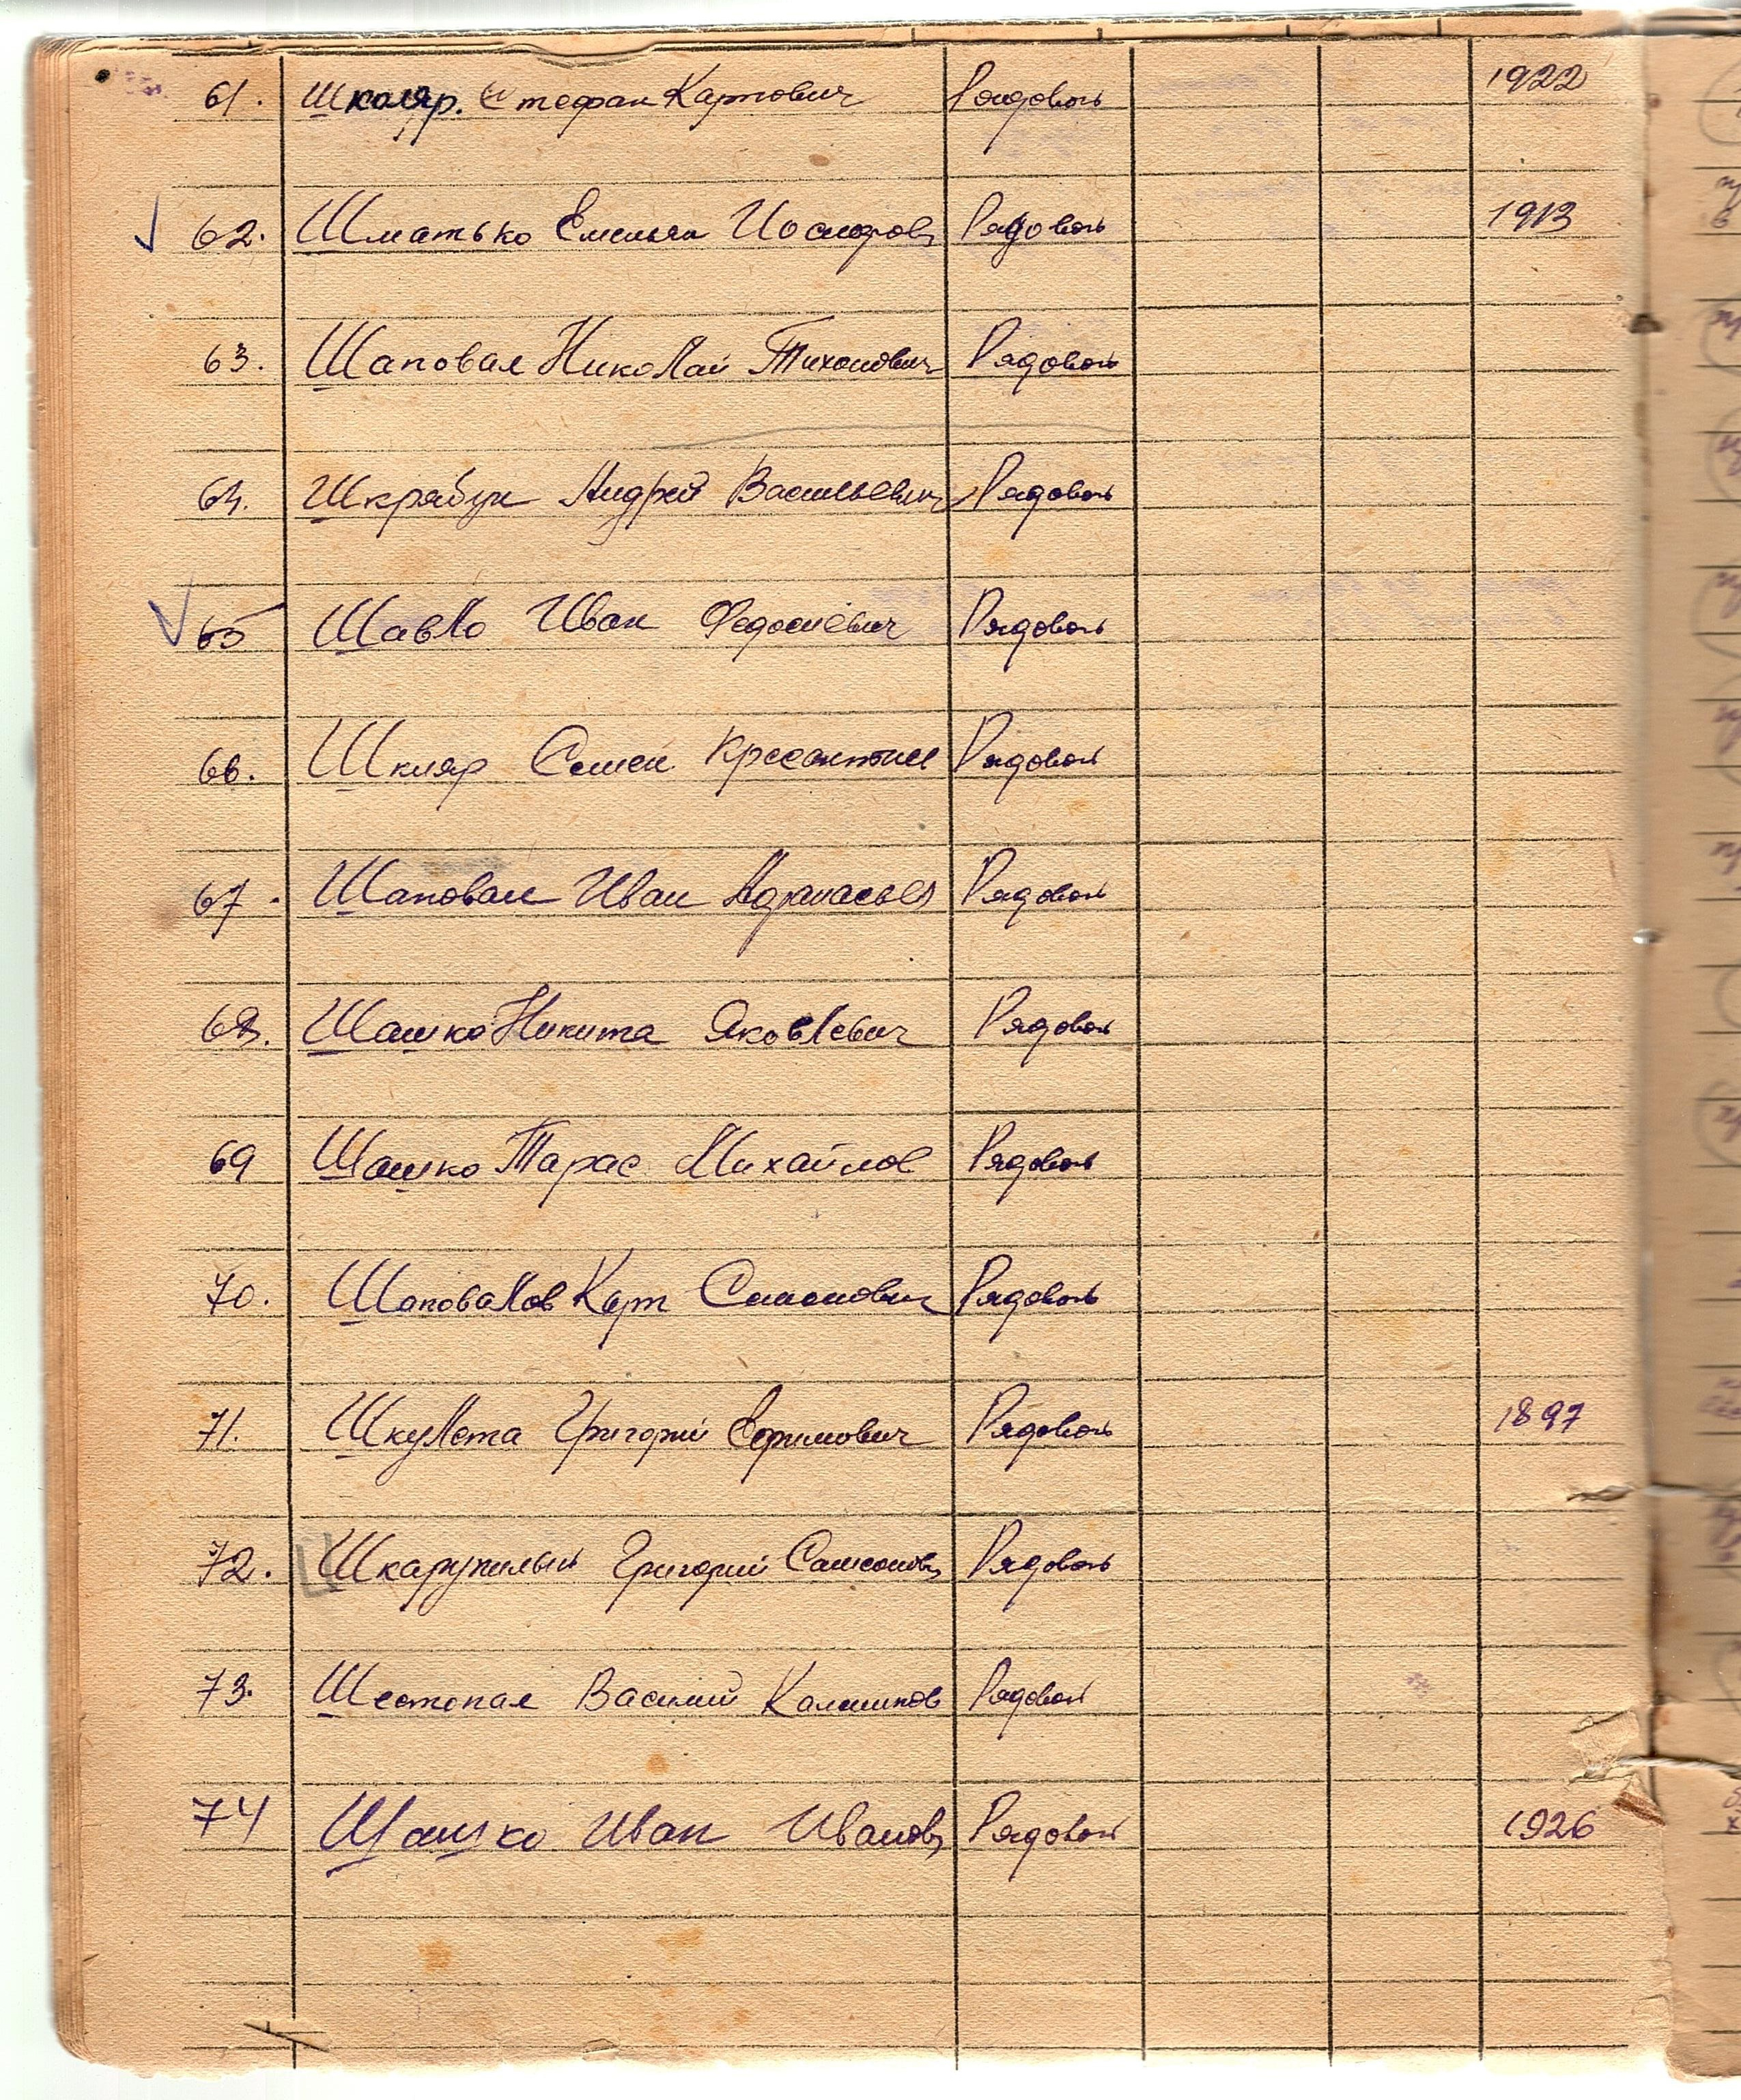 61. Школяр. Стефан Карпович Рядовой 1922
62. Шматько Емельян Иосифов Рядовой 1913
63. Шаповал Николай Тихонович Рядовой
64. Шкрабук Андрей Васильевич Рядовой
65 Шавло Иван Федосиевич Рядовой
66. Шкляр Семен Рядовой
67. Шаповал Иван Афанасьев Рядовой
68. Шашко Никита Яковлевич Рядовой
69 Шашко Тарас Михайлов Рядовой
70. Шаповалов Карп Симонович Рядовой
71. Шкулета Григорий Ефимович Рядовой 1897
72. Шкарупилый Григорий Самсонов Рядовой
73. Шестопал Василий Рядовой
74 Шашко Иван Иванов Рядовой 1926